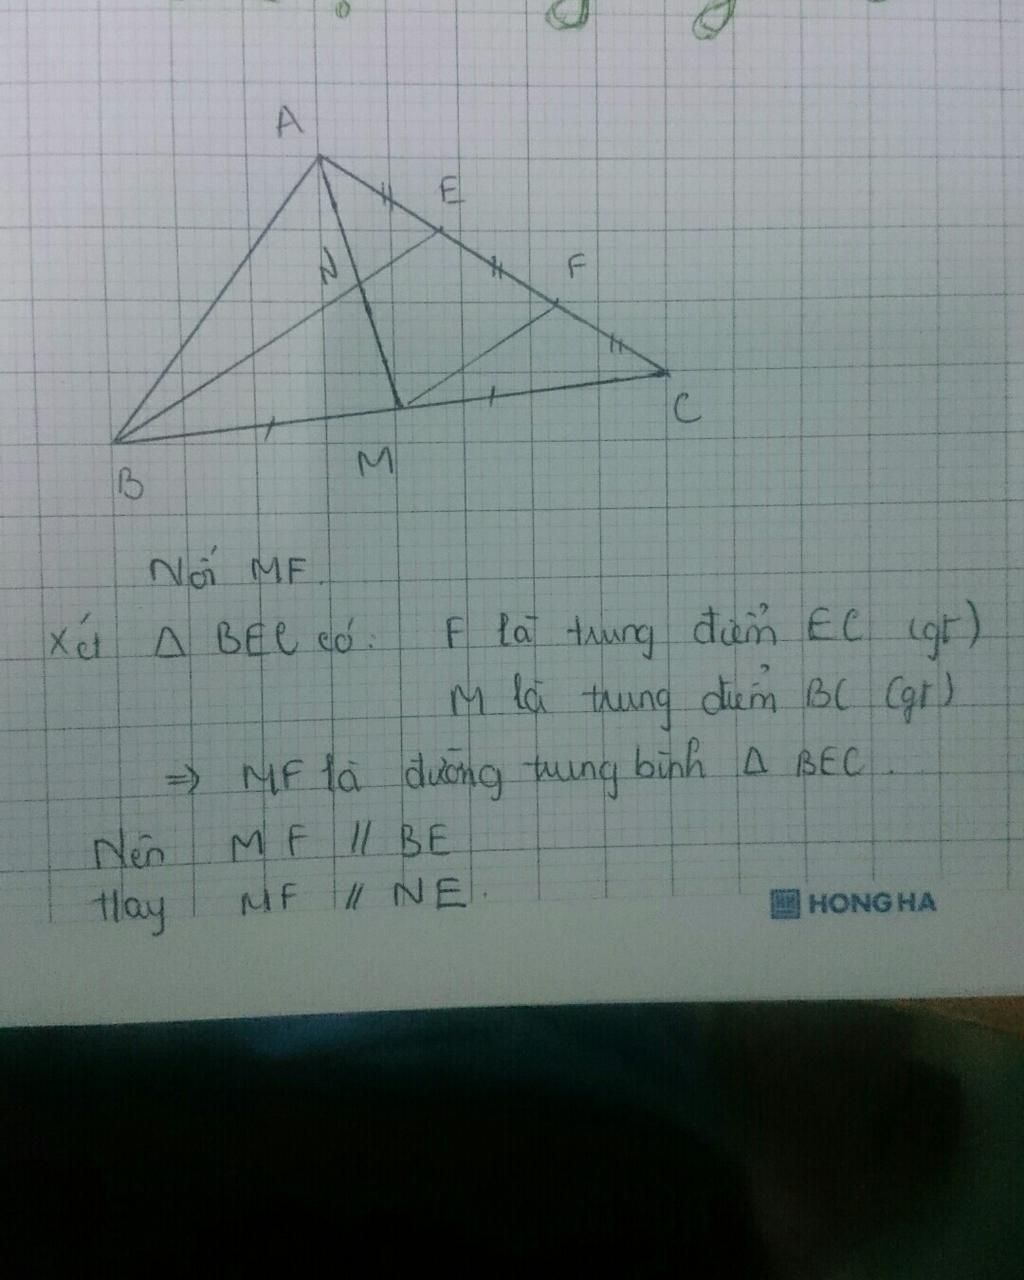 A
E
F
N
C
M
B
Nối MF.
Xét Δ BEC có: F là trung điểm EC (gt)
M là trung điểm BC (gt)
=> MF là đường trung bình Δ BEC.
Nên MF // BE
Hay MF // NE.
HONG HA